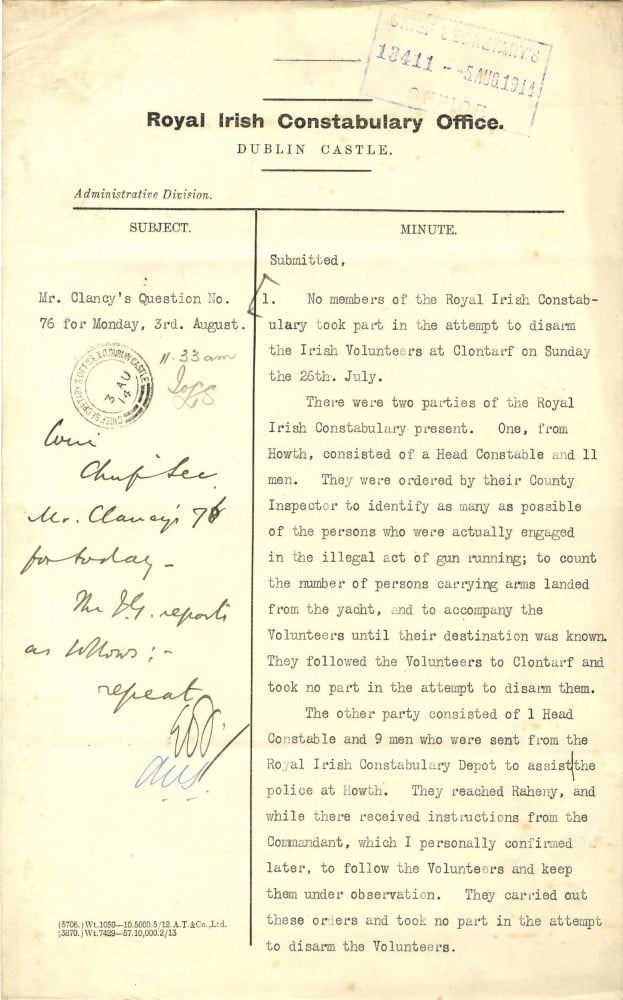 CHIEF SECRETARY'S
13411 - 5 AUG 1914
OFFICE
Royal Irish Constabulary Office.
DUBLIN CASTLE.
Administrative Division.
SUBJECT.
Mr. Clancy's Question No.
76 for Monday, 3rd. August.
11.33 am
CHIEF SECRETARY'S OFFICE, DUBLIN CASTLE
3 AU
14
Chief Sec
Mr. Clancy's 76
for today -
The I.G. reports
as follows:-
repeat
(5706.)Wt.1059—10.5000.5/12.A.T.&Co.,Ltd.
(3870.)Wt.7429—57.10,000.2/13
MINUTE.
Submitted,
1. No members of the Royal Irish Constab-
ulary took part in the attempt to disarm
the Irish Volunteers at Clontarf on Sunday
the 26th. July.
There were two parties of the Royal
Irish Constabulary present. One, from
Howth, consisted of a Head Constable and 11
men. They were ordered by their County
Inspector to identify as many as possible
of the persons who were actually engaged
in the illegal act of gun running; to count
the number of persons carrying arms landed
from the yacht, and to accompany the
Volunteers until their destination was known.
They followed the Volunteers to Clontarf and
took no part in the attempt to disarm them.
The other party consisted of 1 Head
Constable and 9 men who were sent from the
Royal Irish Constabulary Depot to assist the
police at Howth. They reached Raheny, and
while there received instructions from the
Commandant, which I personally confirmed
later, to follow the Volunteers and keep
them under observation. They carried out
these orders and took no part in the attempt
to disarm the Volunteers.